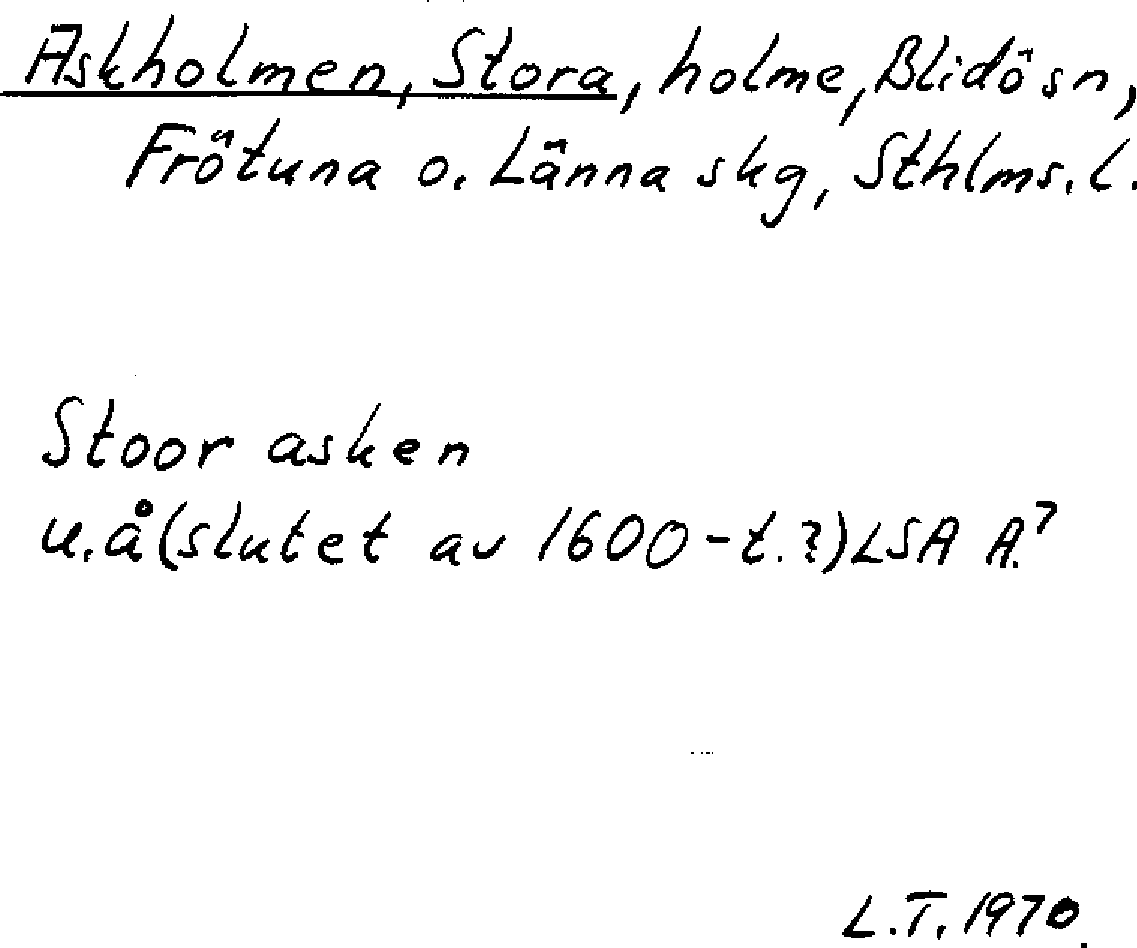 Askholmen, Stora, holme, Blidö sn,
Frötuna o. Länna skg, Sthlms. l.
Stoor asken
u.å (slutet av 1600-t.?) LSA A.7
L.T. 1970.